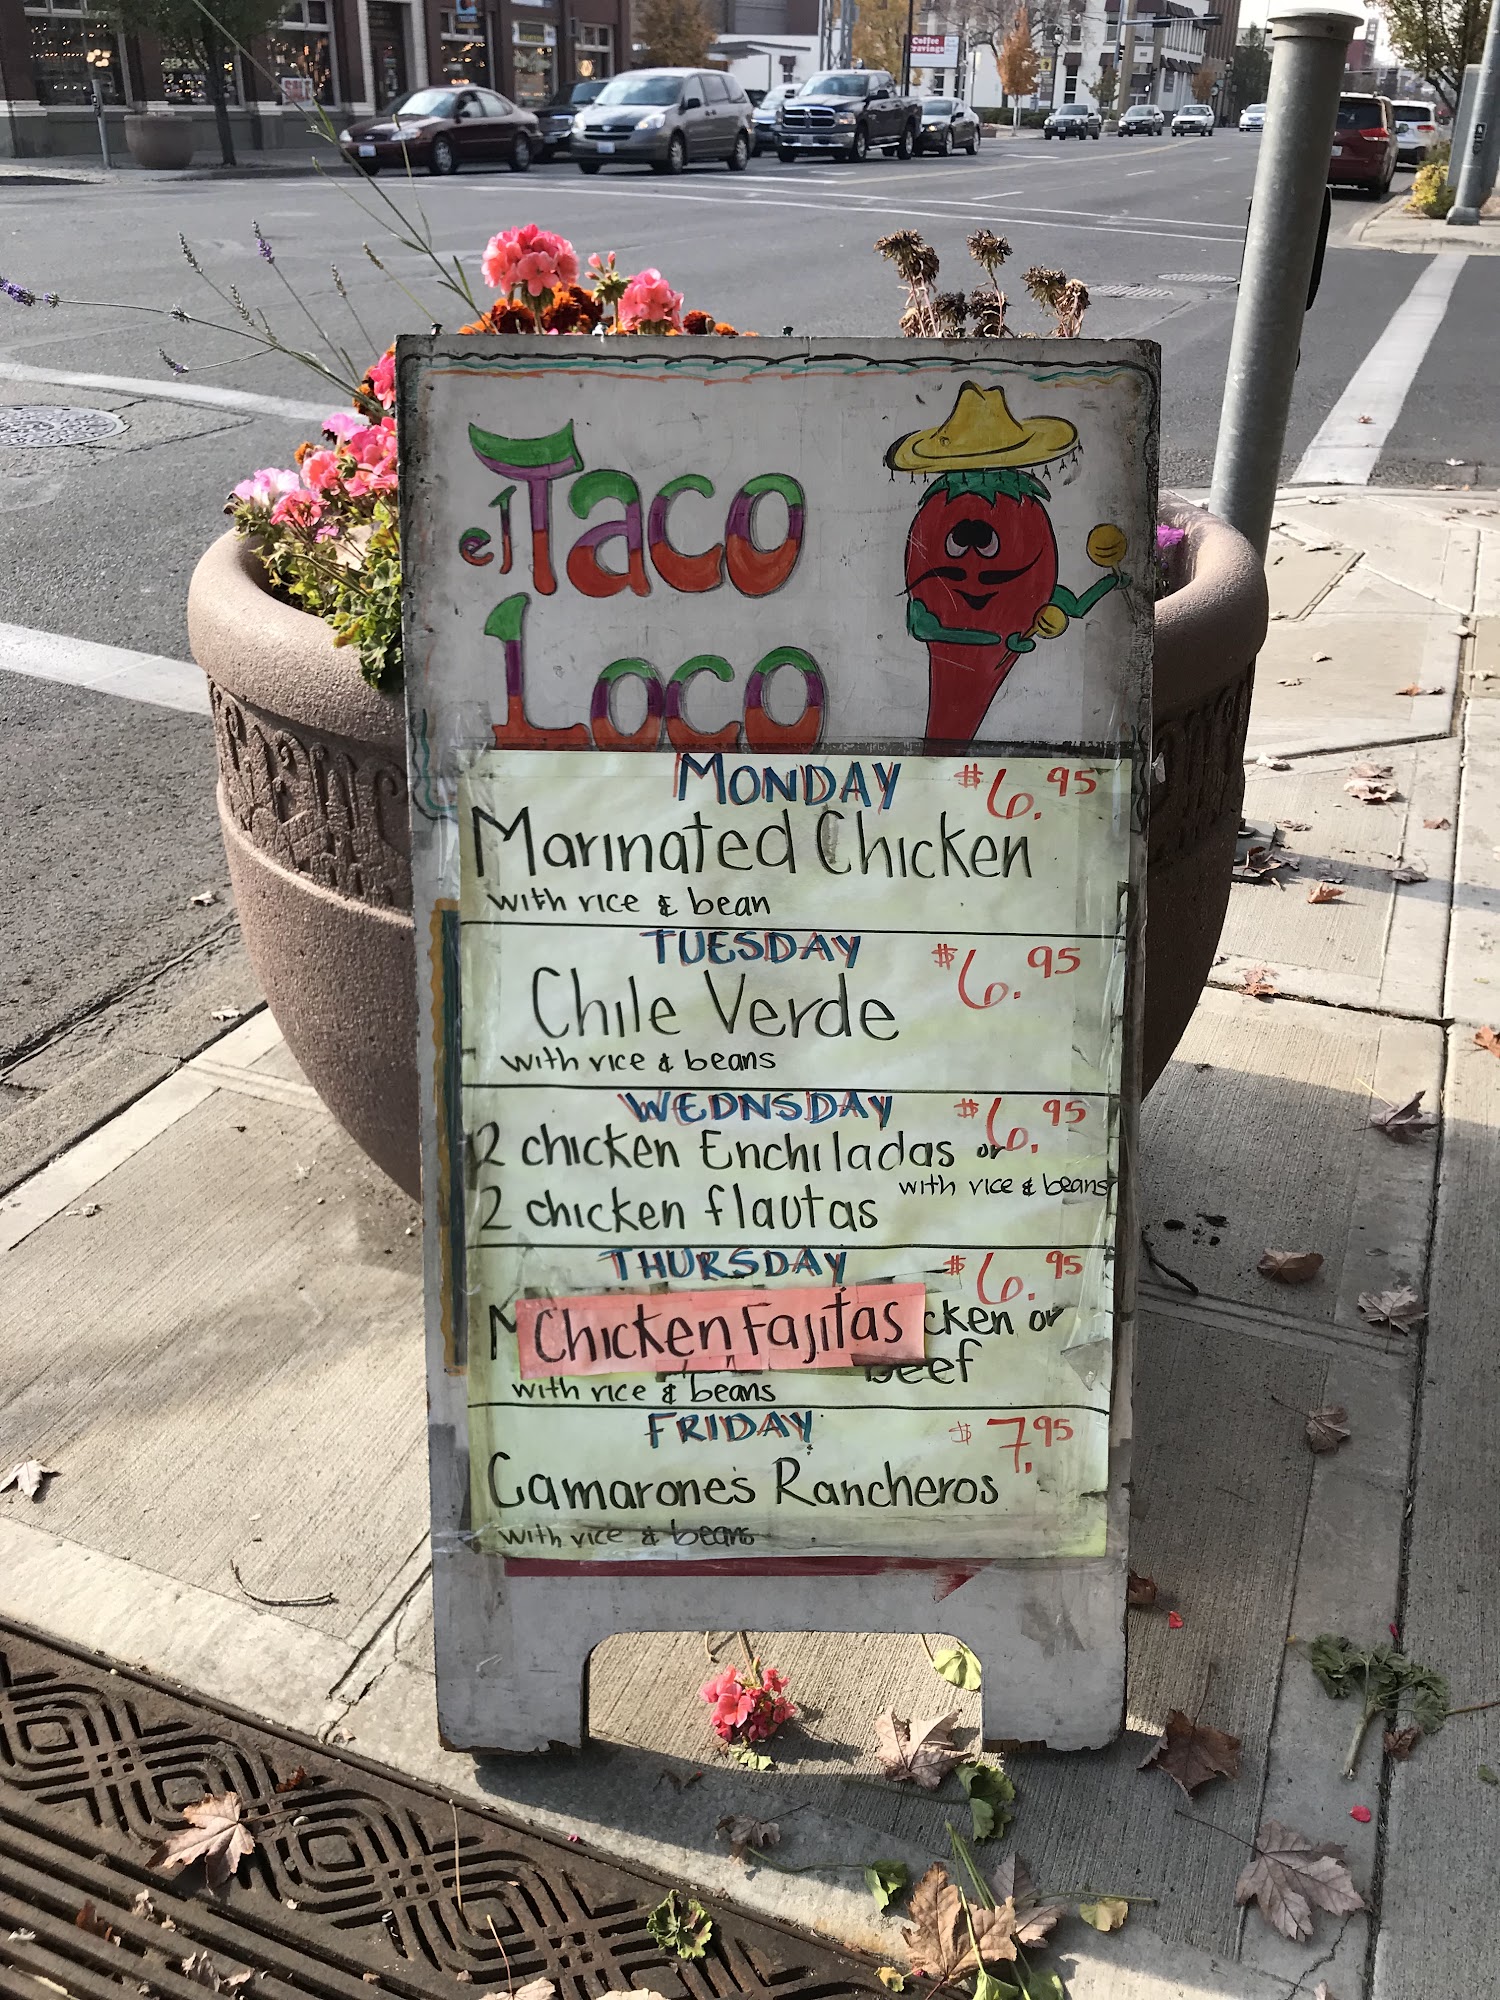 Coffee
Cravings
SALE
el Taco
Loco
MONDAY $6.95
Marinated Chicken
with rice & bean
TUESDAY $6.95
Chile Verde
with rice & beans
WEDNSDAY $6.95
2 chicken Enchiladas or
2 chicken flautas with rice & beans
THURSDAY $6.95
Chicken Fajitas cken or
beef
with rice & beans
FRIDAY $7.95
Camarone's Rancheros
with rice & beans